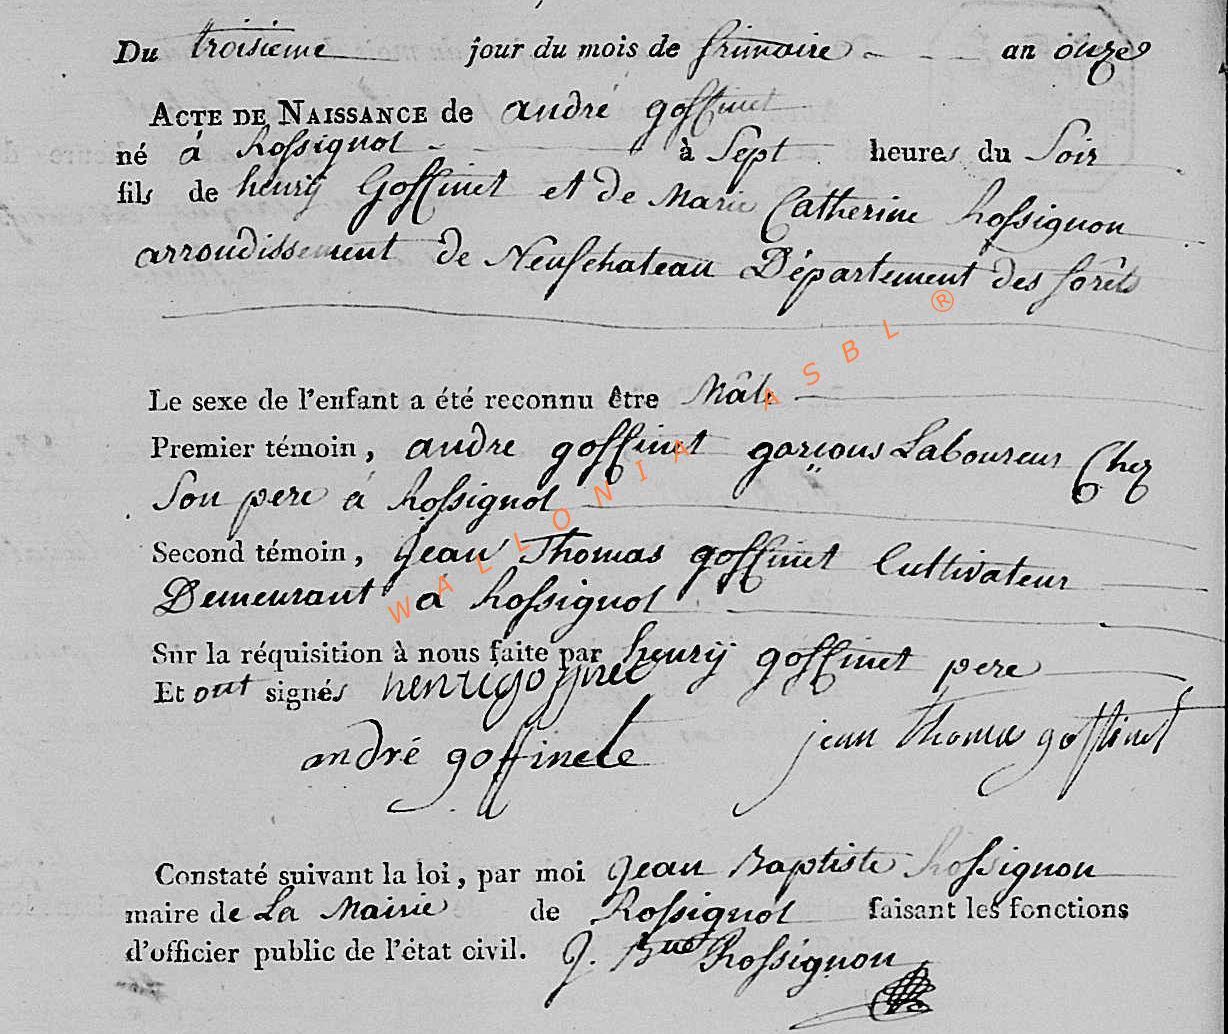 Du troisieme jour du mois de frimaire an onze
ACTE DE NAISSANCE de andré goffinet
né à Rossignol à Sept heures du Soir
fils de henrij Goffinet et de Marie Catherine Rossignon
arrondissement de Neufchateau Département des forêts
Le sexe de l'enfant a été reconnu être Mâle
Premier témoin, andre goffinet garçons Laboureur Chez
Son pere à Rossignol
Second témoin, Jean Thomas goffinet Cultivateur
Demeurant a Rossignol
Sur la réquisition à nous faite par henrij goffinet pere
Et ont signés henri goffinet
andré goffinete jean thomas goffinet
Constaté suivant la loi, par moi Jean Baptiste Rossignon
maire de La Mairie de Rossignol faisant les fonctions
d'officier public de l'état civil. J. Bte Rossignon
WALLONIA ASBL ®